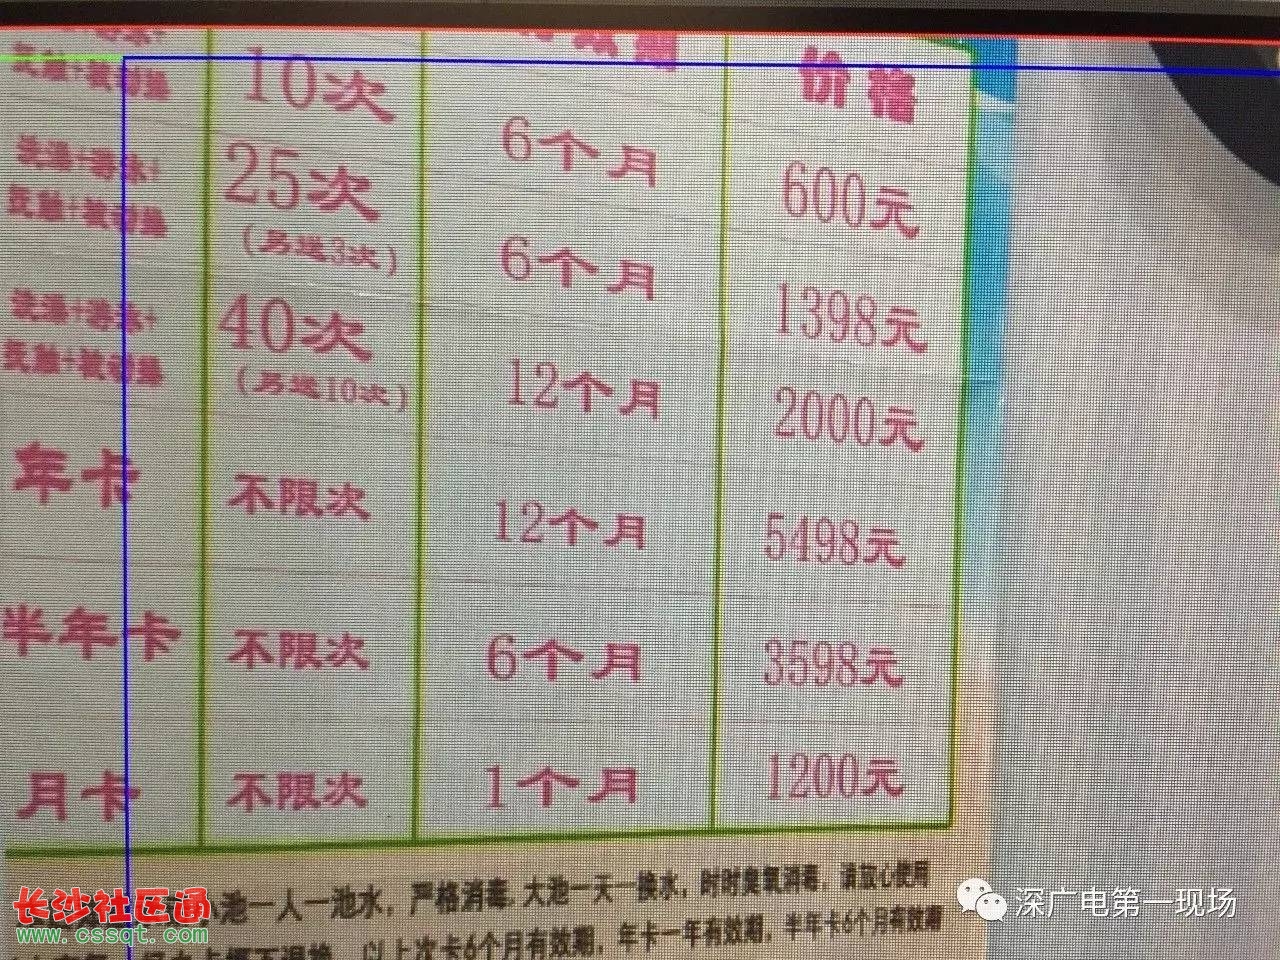 价格
10次 6个月 600元
洗澡+游泳+
抚触+被动操
25次 6个月 1398元
(另送3次)
洗澡+游泳+
抚触+被动操
40次 12个月 2000元
(另送10次)
年卡 不限次 12个月 5498元
半年卡 不限次 6个月 3598元
月卡 不限次 1个月 1200元
池一人一池水，严格消毒，大池一天一换水，时时臭氧消毒，请放心使用
以上次卡6个月有效期，年卡一年有效期，半年卡6个月有效期
长沙社区通
www.cssqt.com
深广电第一现场